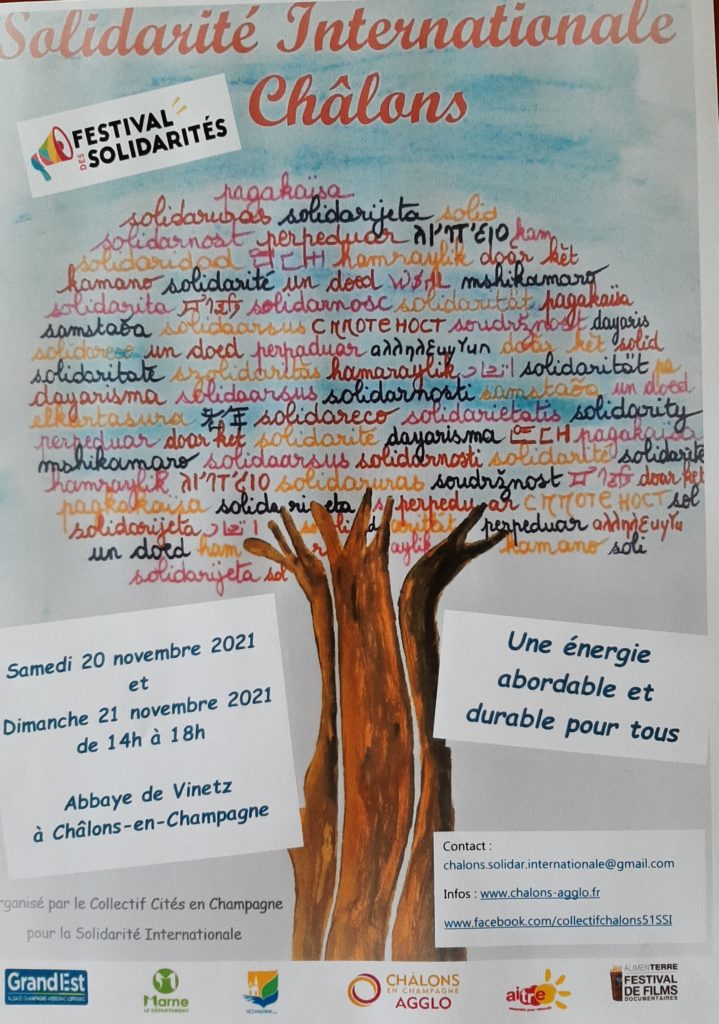 Solidarité Internationale
Châlons
FESTIVAL
DES SOLIDARITÉS
pagakaïsa
solidaruras solidarijeta solid
solidarnost perpeduar ham
solidaridad 연대 hamraylik doar kèt
kamano solidarité un doed mshikamaro
solidarita solidarnosc solidaritat pagakaïsa
samstaða solidaarsus soudržnost dayaris
solidareco un doed perpaduar αλληλεγγύη doar kèt solid
solidaritate szolidaritas hamaraylik اتحاد solidarität pa
dayarisma solidaarsus solidarnosti samstaða un doed
elkartasuna solidareco solidarietatis solidarity
perpeduar doar ket solidarité dayarisma 연대 pagakaïsa
mshikamaro solidaarsus solidarnosti solidarité solidarité
hamraylik solidaruras soudržnost doar ket
pagkakaïsa solidarijeta perpeduar sol
solidarijeta اتحاد perpeduar αλληλεγγύη
un doed ham raylik hamano soli
solidarijeta sol
Samedi 20 novembre 2021
et
Dimanche 21 novembre 2021
de 14h à 18h
Abbaye de Vinetz
à Châlons-en-Champagne
Une énergie
abordable et
durable pour tous
Contact :
chalons.solidar.internationale@gmail.com
Infos : www.chalons-agglo.fr
www.facebook.com/collectifchalons51SSI
rganisé par le Collectif Cités en Champagne
pour la Solidarité Internationale
GrandEst
ALSACE CHAMPAGNE-ARDENNE LORRAINE
Marne
LE DÉPARTEMENT
CHÂLONS
EN CHAMPAGNE
AGGLO
aitre
ALIMENTERRE
FESTIVAL
DE FILMS
DOCUMENTAIRES